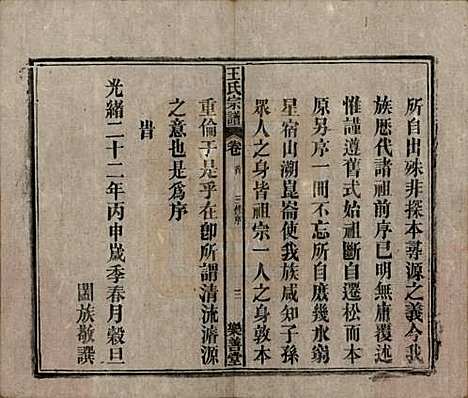 所自出殊非探本尋源之義今我
族歷代諸祖前序已明無庸覆述
惟謹遵舊式始祖斷自遷松而本
原另序一冊不忘所自庶幾水窮
星宿山溯崑崙使我族咸知子孫
眾人之身皆祖宗一人之身敦本
王氏宗譜
卷首
三
樂善堂
重倫于是乎在卽所謂清流濬源
之意也是為序
旹
光緒二十二年丙申歲季春月穀旦
闔族敬譔